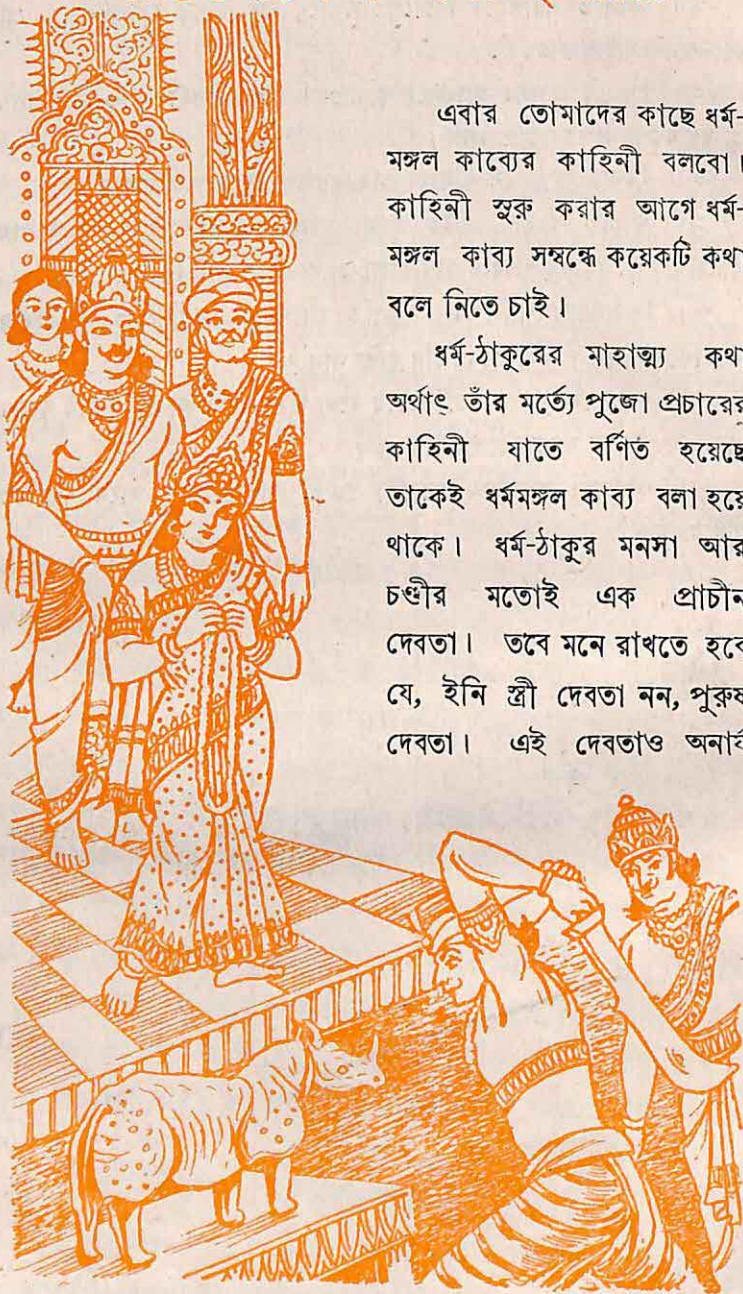 এবার তোমাদের কাছে ধর্ম-
মঙ্গল কাব্যের কাহিনী বলবো।
কাহিনী সুরু করার আগে ধর্ম-
মঙ্গল কাব্য সম্বন্ধে কয়েকটি কথা
বলে নিতে চাই।
ধর্ম-ঠাকুরের মাহাত্ম্য কথা
অর্থাৎ তাঁর মর্ত্যে পুজো প্রচারের
কাহিনী যাতে বর্ণিত হয়েছে
তাকেই ধর্মমঙ্গল কাব্য বলা হয়ে
থাকে। ধর্ম-ঠাকুর মনসা আর
চণ্ডীর মতোই এক প্রাচীন
দেবতা। তবে মনে রাখতে হবে
যে, ইনি স্ত্রী দেবতা নন, পুরুষ
দেবতা। এই দেবতাও